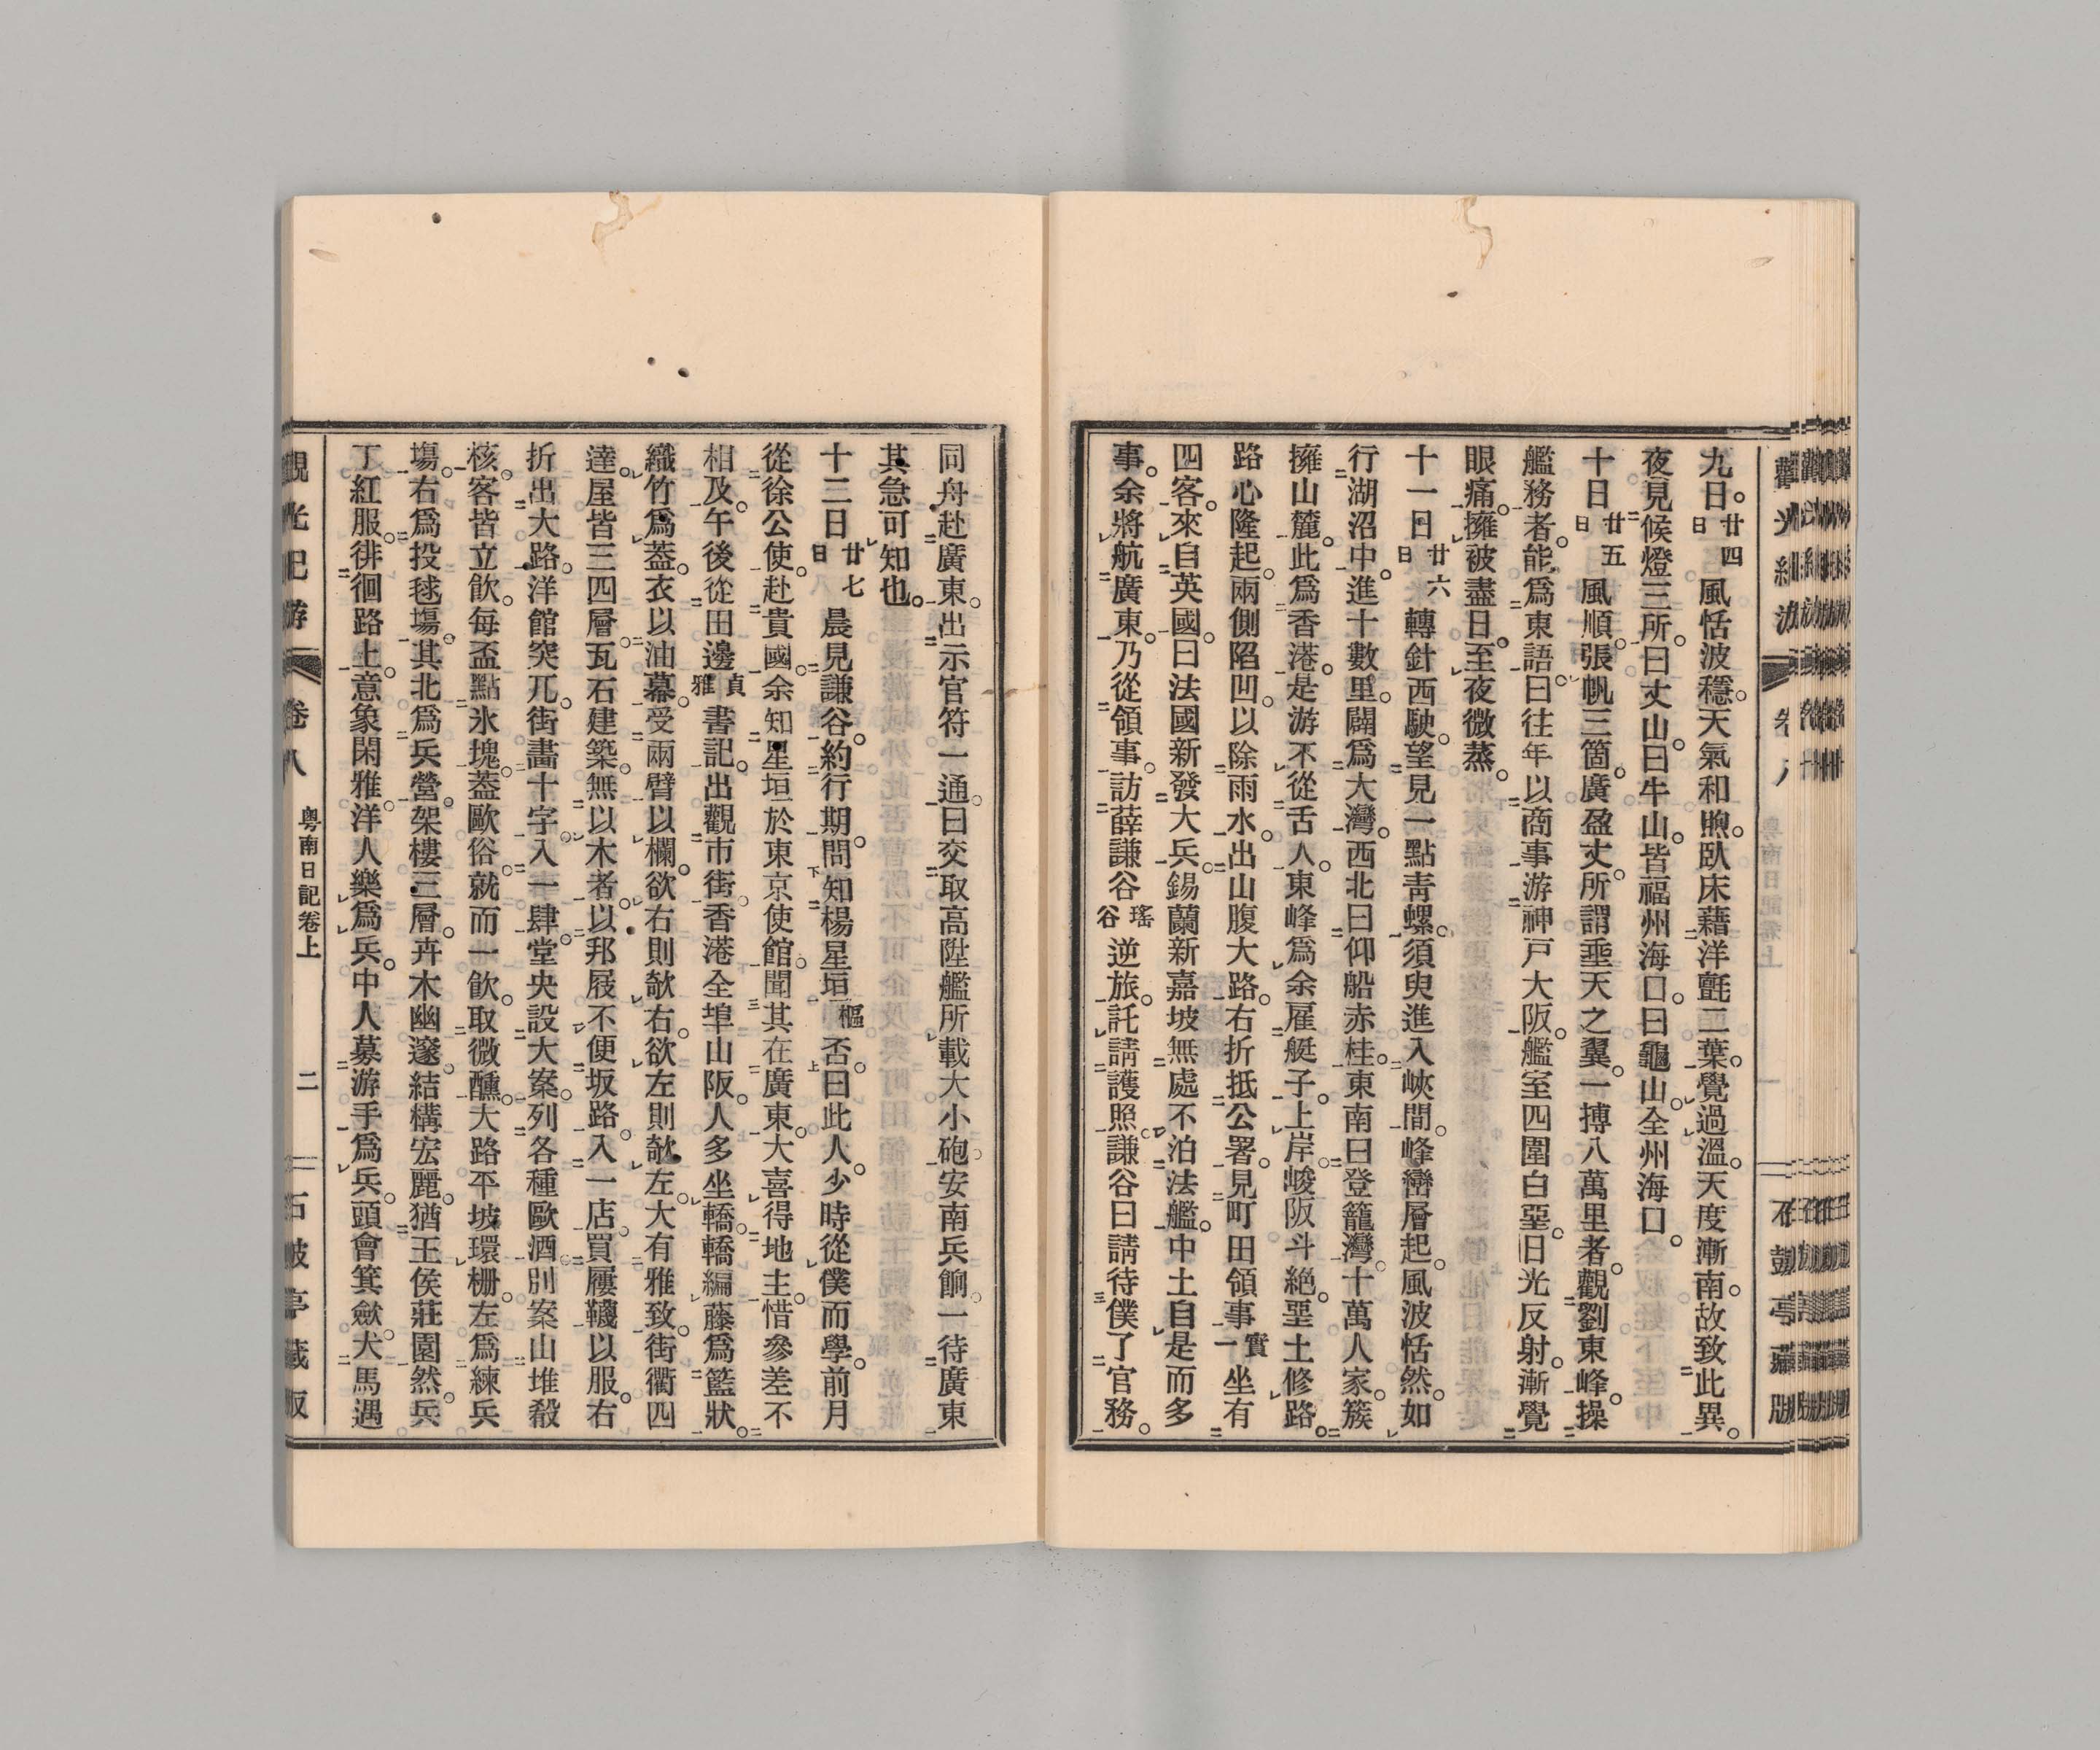 九日。廿四日風恬波穩。天氣和煦。臥床藉洋氈二葉。覺過溫。天度漸南。故致此異。
夜見候燈三所。曰丈山。曰牛山。皆福州海口。曰龜山。全州海口。
十日廿五日風順。張帆三箇。廣盈丈。所謂垂天之翼。一搏八萬里者。觀劉東峰。操
艦務者。能爲東語。曰往年以商事游神戶大阪。艦室四圍白堊。日光反射。漸覺
眼痛。擁被盡日。至夜微蒸。
十一日廿六日轉針西駛。望見一點靑螺。須臾進入峽間。峰巒層起。風波恬然。如
行湖沼中。進十數里。闢爲大灣。西北曰仰船赤桂。東南曰登籠灣。十萬人家。簇
擁山麓。此爲香港。是游不從舌人。東峰爲余雇艇子。上岸。峻阪斗絕。堊土修路。
路心隆起。兩側陷凹。以除雨水。出山腹大路。右折抵公署。見町田領事實一坐有
四客。來自英國。曰法國新發大兵。錫蘭新嘉坡無處不泊法艦。中土自是而多
事。余將航廣東。乃從領事。訪薛謙谷瑤谷逆旅。託請護照。謙谷曰請待僕了官務。
同舟赴廣東。出示官符一通。曰交取高陞艦所載大小砲安南兵餉。一待廣東
其急可知也。
十二日廿七日晨見謙谷。約行期。問知楊星垣樞否。曰此人。少時從僕而學。前月
從徐公使。赴貴國。余知星垣於東京使館。聞其在廣東。大喜得地主。惜參差不
相及。午後從田邊貞雅書記。出觀市街。香港全埠山阪。人多坐轎。轎編藤爲籃狀。
織竹爲蓋。衣以油幕。受兩臂以欄。欲右則欹右。欲左則欹左。大有雅致。街衢四
達。屋皆三四層。瓦石建築。無以木者。以邦屐不便坂路。入一店。買屨韈以服。右
折出大路。洋館突兀。街畫十字。入一肆。堂央設大案。列各種歐酒。別案山堆殽
核。客皆立飮。每盃點氷塊。蓋歐俗。就而一飮。取微醺。大路平坡環柵。左爲練兵
塲。右爲投毬塲。其北爲兵營。架樓三層。卉木幽邃。結構宏麗。猶王侯莊園然。兵
丁紅服。徘徊路上。意象閑雅。洋人樂爲兵。中人募游手爲兵。頭會箕斂。犬馬遇
觀光紀游 卷八 粤南日記卷上 二 石皷亭藏版